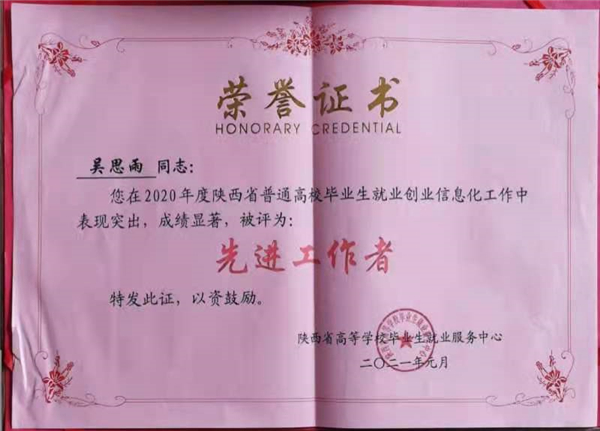 荣誉证书
HONORARY CREDENTIAL
吴思雨 同志：
您在2020年度陕西省普通高校毕业生就业创业信息化工作中
表现突出，成绩显著，被评为：
先进工作者
特发此证，以资鼓励。
陕西省高等学校毕业生就业服务中心
二〇二一年元月